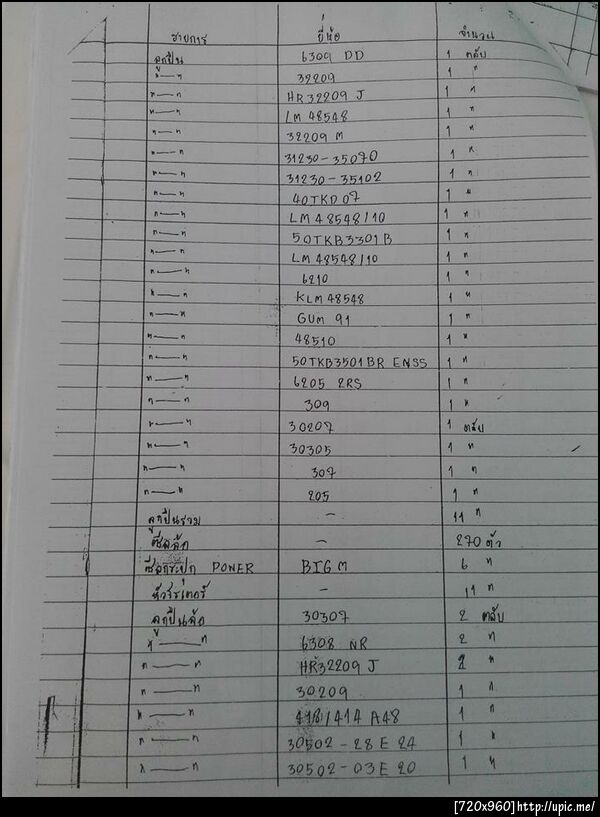 รายการ ยี่ห้อ จำนวน
ลูกปืน 6309 DD 1 ตลับ
"—" 32209 1 "
"—" HR32209 J 1 "
"—" LM 48548 1 "
"—" 32209 M 1 "
"—" 31230-35070 1 "
"—" 31230-35102 1 "
"—" 40TKD 07 1 "
"—" LM48548/10 1 "
"—" 50TKB3301B 1 "
"—" LM48548/10 1 "
"—" 6210 1 "
"—" KLM48548 1 "
"—" GUM 91 1 "
"—" 48510 1 "
"—" 50TKB3501BR ENSS 1 "
"—" 6205 2RS 1 "
"—" 309 1 "
"—" 30207 1 ตลับ
"—" 30305 1 "
"—" 307 1 "
"—" 205 1 "
ลูกปืนรวม - 11 "
ซีลล้อ - 270 ตัว
ซีลกระปุก POWER BIG M 6 "
- 11 "
ลูกปืนล้อ 30307 2 ตลับ
"—" 6308 NR 2 "
"—" HR32209 J 2 "
"—" 30209 1 "
"—" A48 1 "
"—" 30502-28 E 24 1 "
"—" 30502-03E 20 1 "
[720x960]http://upic.me/